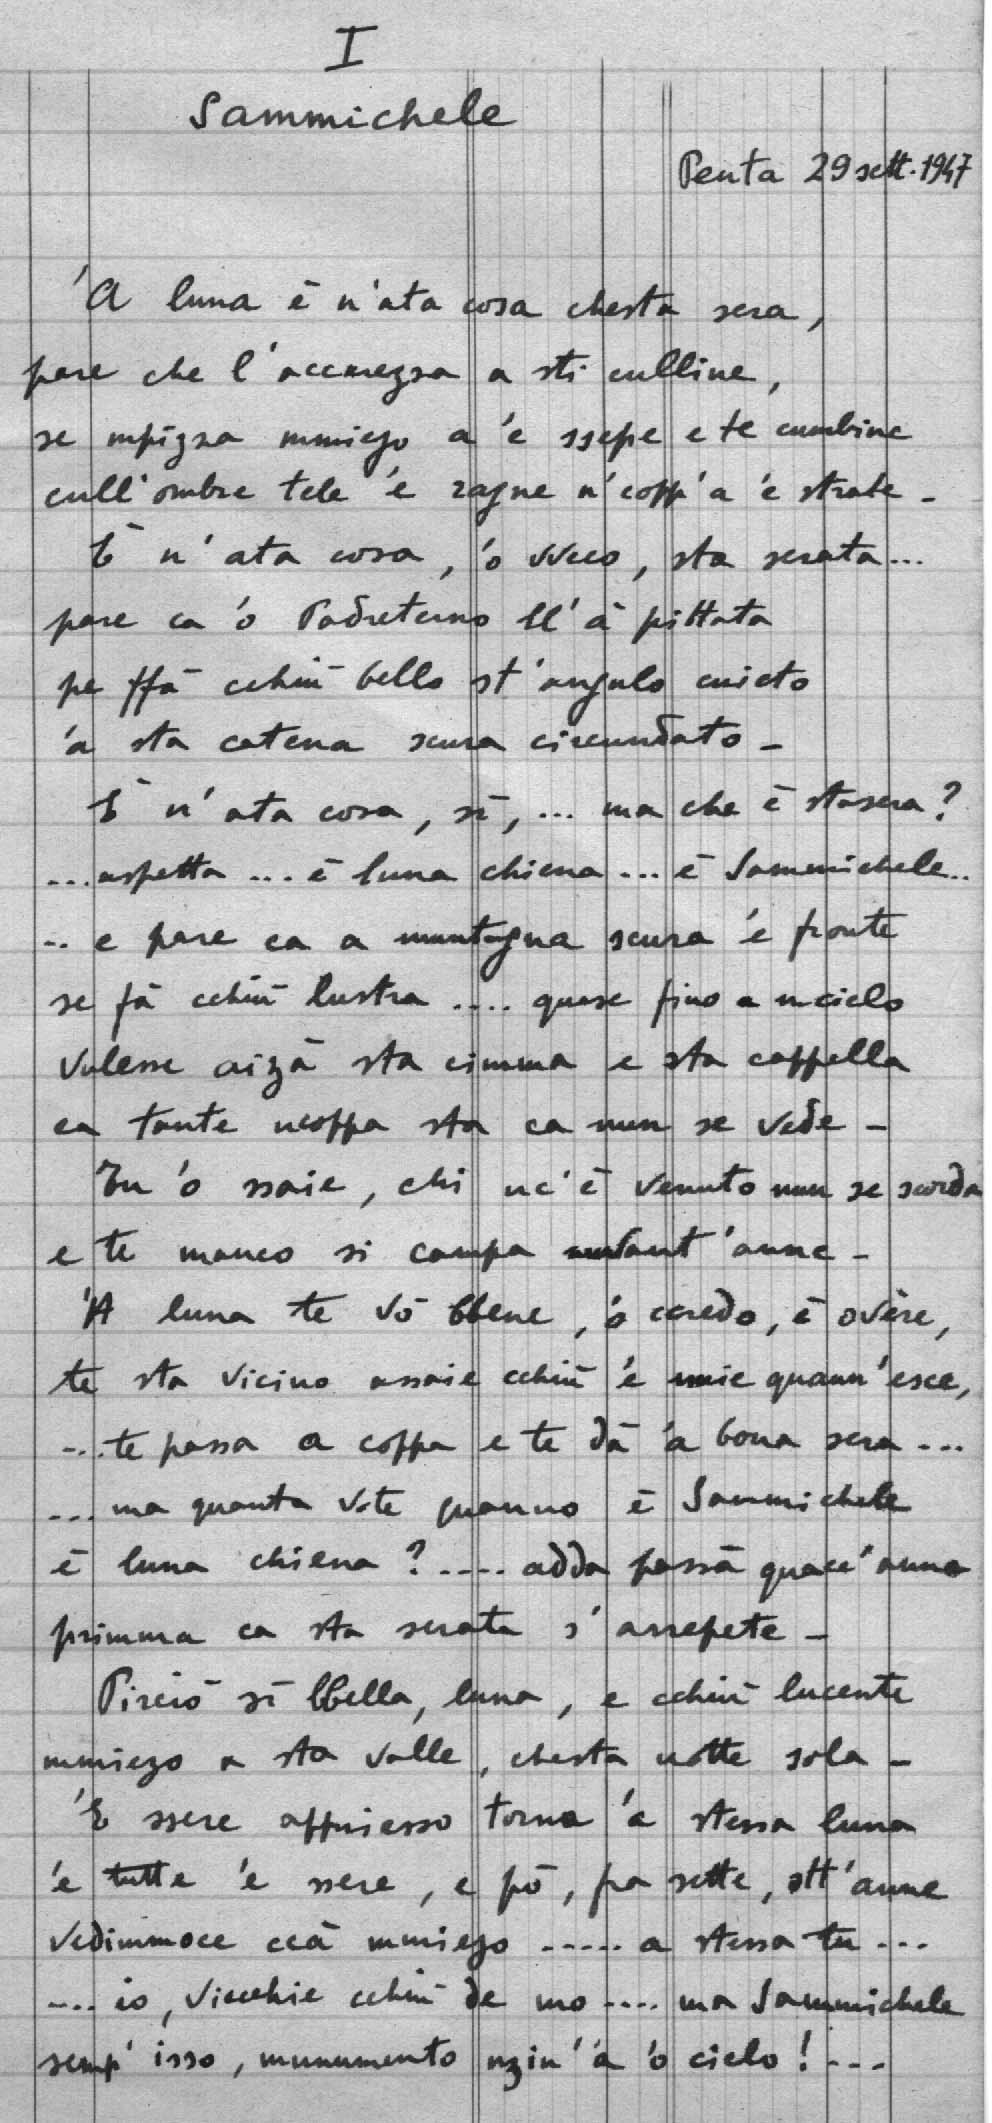 I
Sammichele
Penta 29 sett. 1947
'A luna è n'ata cosa chesta sera,
pare che l'accarezza a sti culline,
se mpizza mmiezo a 'e ssepe e te cumbine
cull'ombre tele 'e ragne n'copp'a 'e strate -
È n'ata cosa, 'o vveco, sta serata...
pare ca 'o Padreterno ll'à pittata
pe ffà cchiù bello st'angulo cuieto
'a sta catena scura circundato -
È n'ata cosa, sì, ... ma che è stasera?
...aspetta ... è luna chiena ... è Sammichele..
.. e pare ca a muntagna scura 'e fronte
se fà cchiù lustra .... quase fino a ncielo
vulesse aizà sta cimma e sta cappella
ca tante ncoppa sta ca nun se vede -
Tu 'o ssaie, chi nc'è venuto nun se scorda
e te manco si campa nutant'anne -
'A luna te vò bbene, 'o ccredo, è overe,
te sta vicino assaie cchiù 'e nuie quann'esce,
...te passa a coppa e te dà 'a bona sera ...
... ma quanta vote quanno è Sammichele
è luna chiena ? .... adda passà quacc'anno
primma ca sta serata s'arrepete -
Pirciò sì bbella, luna, e cchiù lucente
mmiezo a sta valle, chesta notte sola -
'E ssere appriesso torna 'a stessa luna
'e tutte 'e ssere, e pò, fra sette, ott'anne
vedimmoce ccà mmiezo ..... a stessa tu ...
.... io, viecchie cchiù de mo .... ma Sammichele
semp'isso, munumento nzin'a 'o cielo ! ...